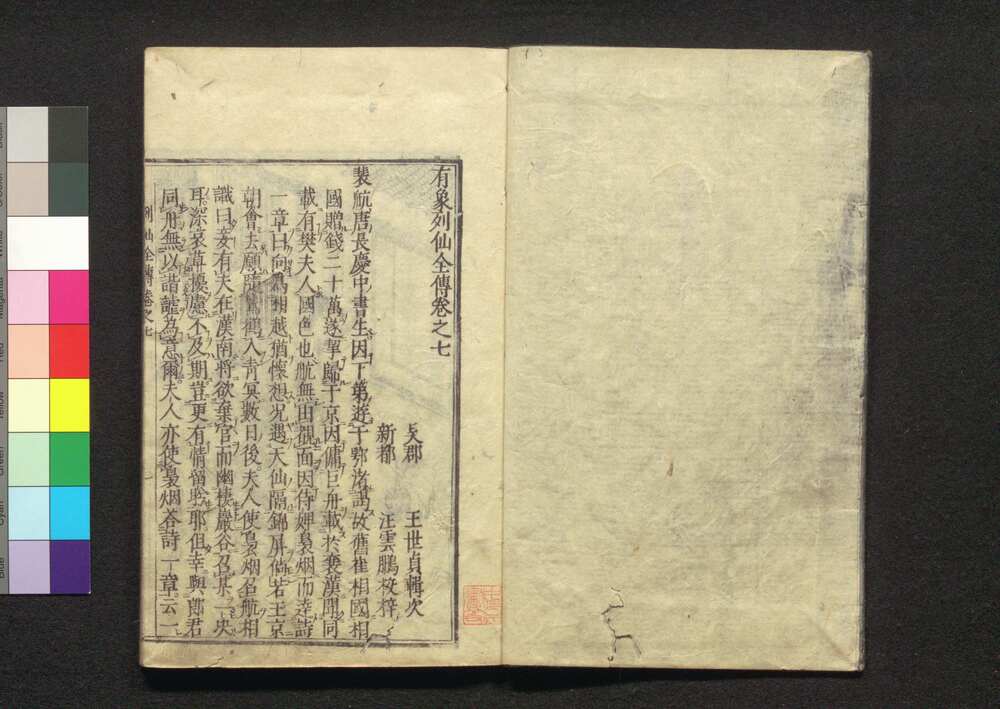 有象列仙全傳卷之七
吳郡 王世貞輯次
新都 汪雲鵬校梓
裴航唐長慶中書生因下第遊于鄂渚謁故舊崔相國相
國贈錢二十萬遂挈歸于京因傭巨舟載於襄漢聞同
載有樊夫人國色也航無由覿面因侍婢裊烟而達詩
一章曰向爲胡越猶懷想况遇天仙隔錦屏倘若玉京
朝會去願隨鸞鶴入青冥數日後夫人使裊烟召航相
識曰妾有夫在漢南將欲棄官而幽棲巖谷召某一决
耳深哀草擾慮不及期豈更有情留盼耶但幸與郎君
同舟無以諧謔爲意爾夫人亦使裊烟答詩一章云一
列仙全傳卷之七